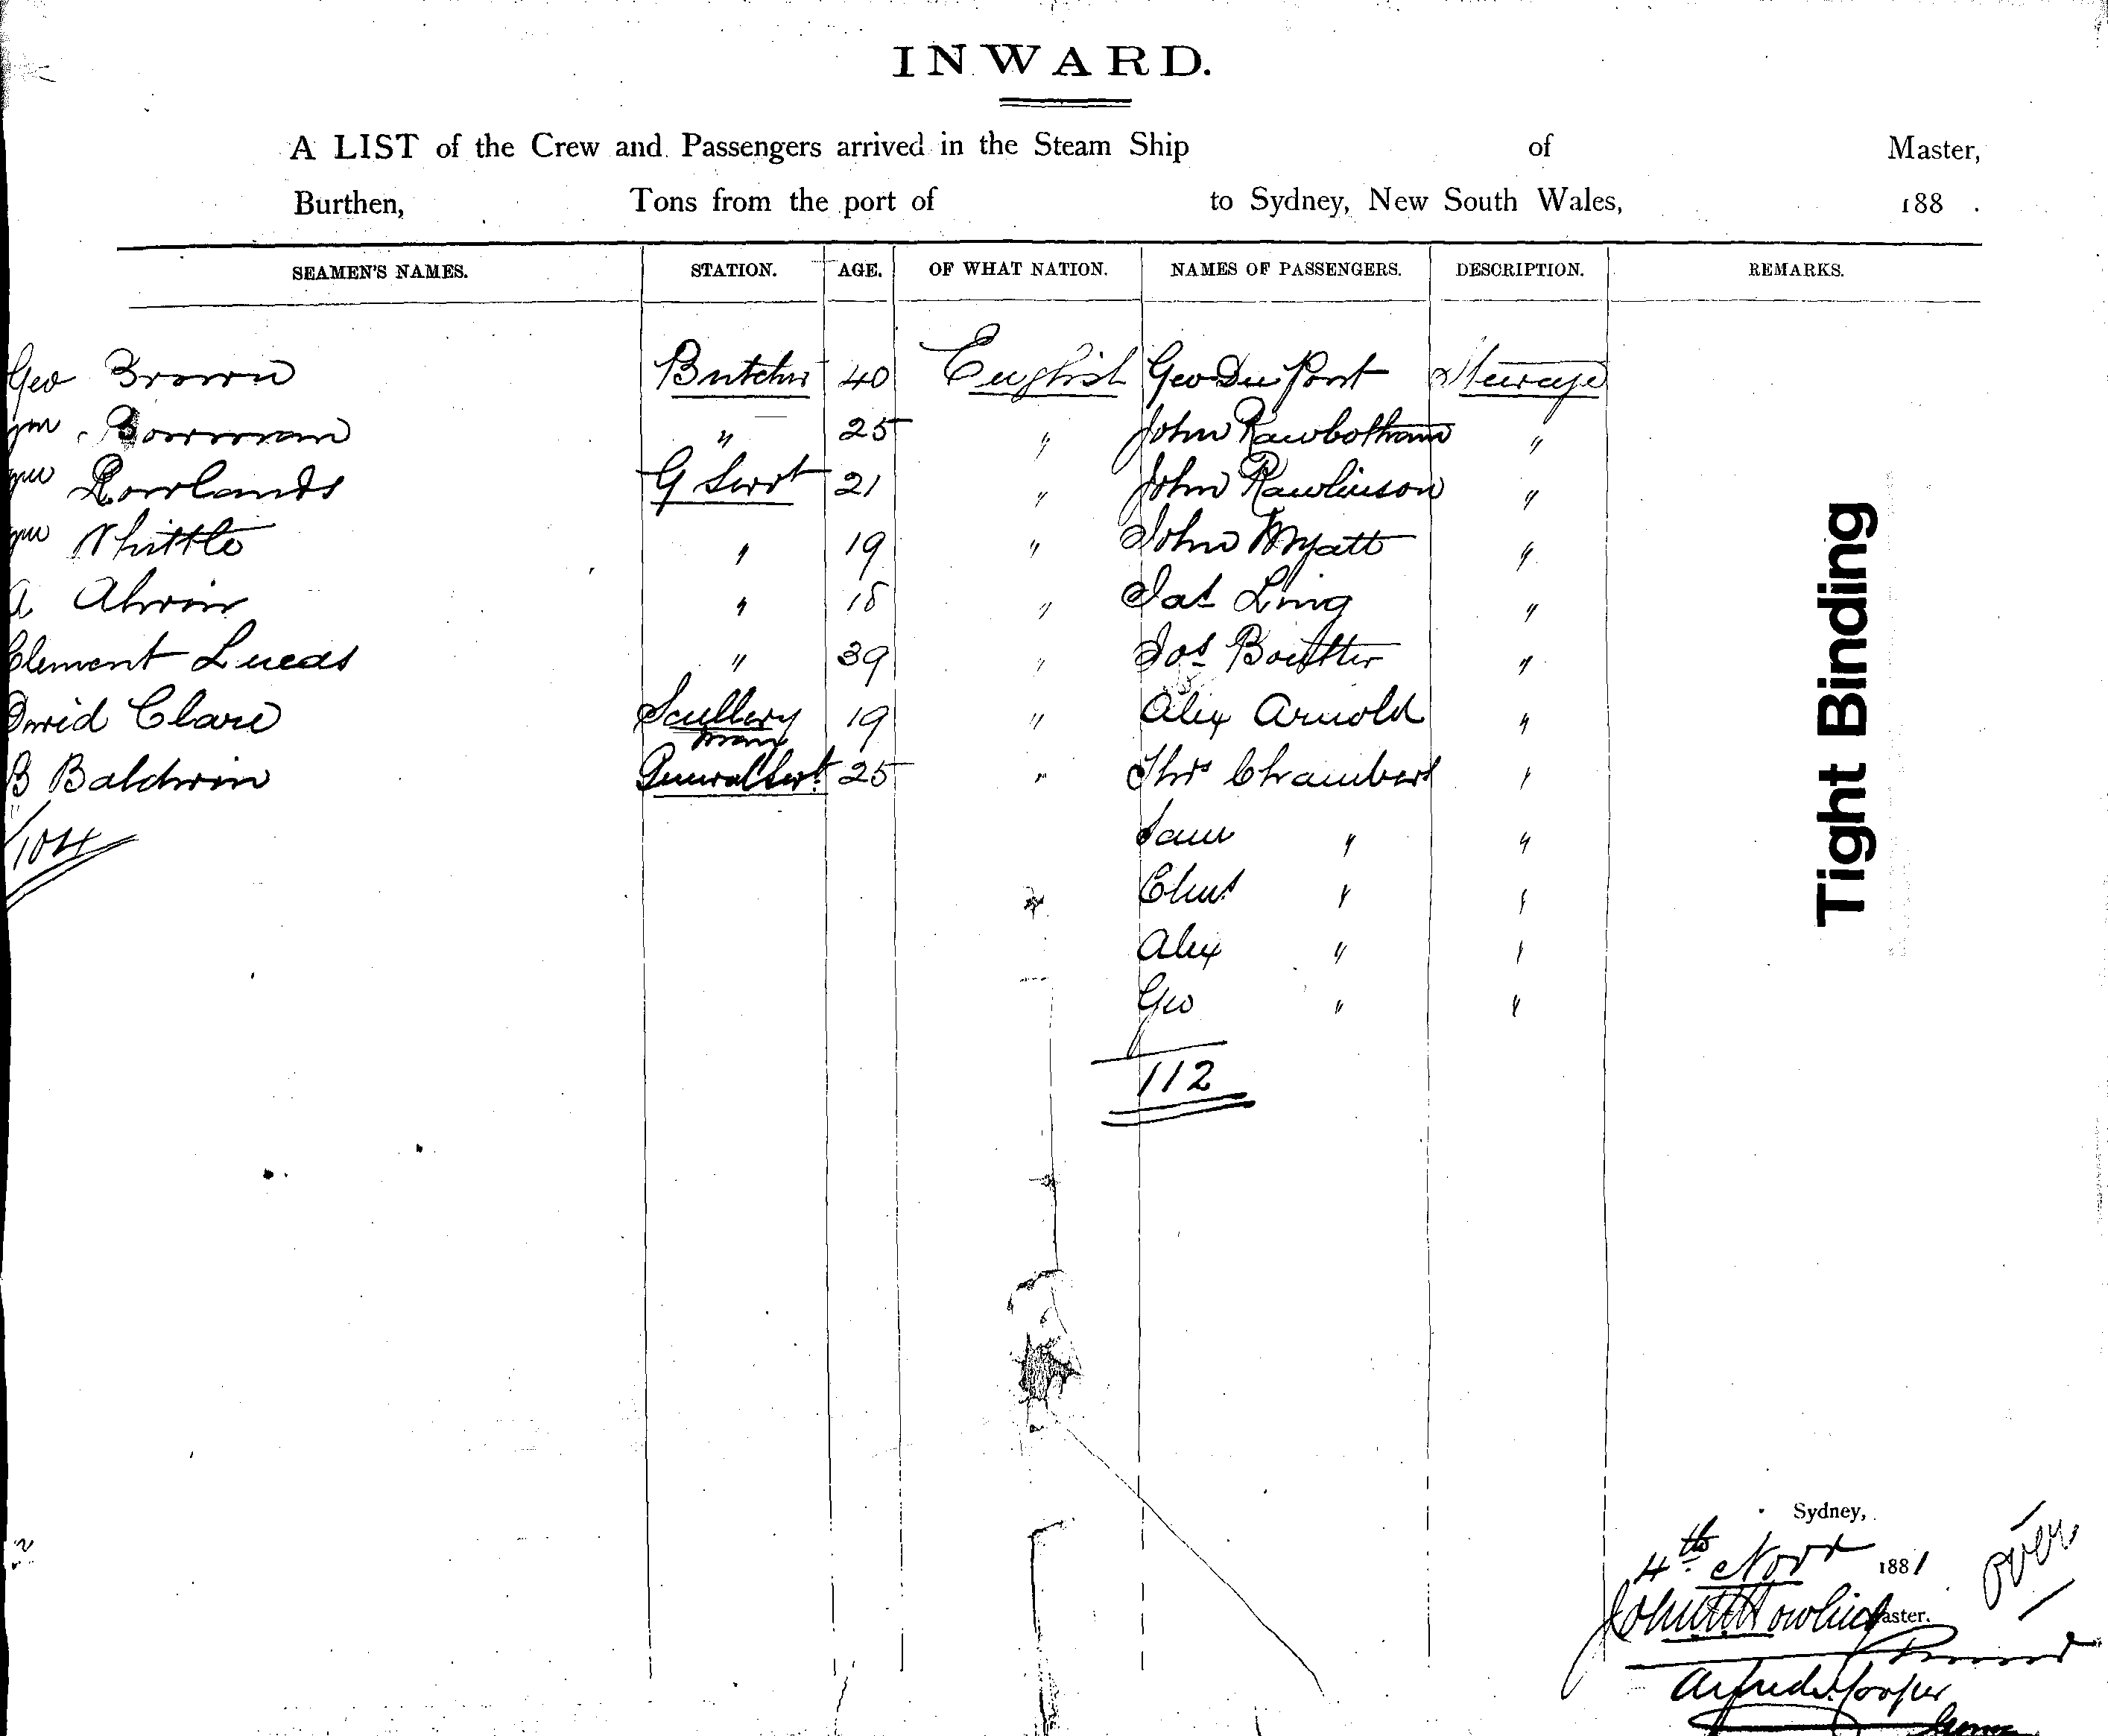 INWARD.
A LIST of the Crew and Passengers arrived in the Steam Ship of Master,
Burthen, Tons from the port of to Sydney, New South Wales, 188 .
SEAMEN'S NAMES. STATION. AGE. OF WHAT NATION. NAMES OF PASSENGERS. DESCRIPTION. REMARKS.
Geo Brown Butcher 40 English Geo Du Pont Steerage
Wm Bowman " 25 " John Rawbotham "
Wm Rowlands G Servt 21 " John Rawlinson "
Wm Whittle " 19 " John Myatt "
A " 18 " Jas Ling "
Clement Lucas " 39 " Jos Boulter "
David Clare Scullery man 19 " Alex Arnold "
B Baldwin General Servt 25 " Thos Chambers "
104 Saml " "
Chas " "
Alex " "
Geo " "
112
Tight Binding
Sydney,
4th Novr 1881
John Master.
over
Alfred Cooper